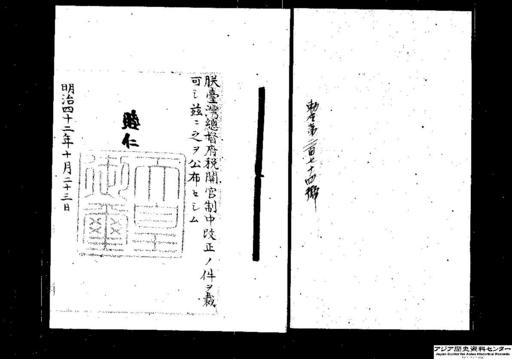 勅令第二百七十四號
朕臺灣總督府税關官制中改正ノ件ヲ裁
可シ茲ニ之ヲ公布セシム
睦仁
天皇御璽
明治四十二年十月二十三日
アジア歴史資料センター
Japan Center for Asian Historical Records